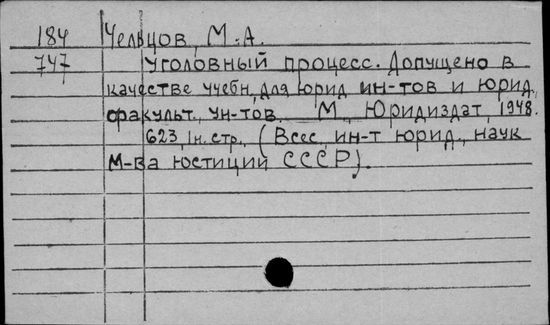 184 Чельцов, М.А.
747 Уголовный процесс. Допущено в
качестве учебн, для юрид ин-тов и юрид.
факульт, ун-тов. М, Юридиздат, 1948.
623, 1н. стр., (Всес, ин-т юрид, наук
М-ва юстиции СССР).